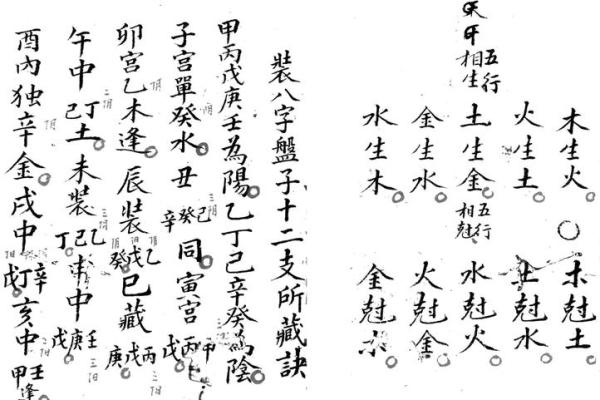 木生火 木尅土
火生土 土尅水
五行相生 土生金 五行相尅 水尅火
金生水 火尅金
水生木 金尅木
裝八字盤子十二支所藏訣
甲丙戊庚壬為陽乙丁己辛癸為陰
子宮單癸水丑己癸辛同寅宮甲丙戊
卯宮乙木逢辰裝乙戊癸巳藏丙戊庚
午中丁己土未裝乙己丁申中壬庚戊
酉內独辛金戌中辛丁戊亥中壬甲逢